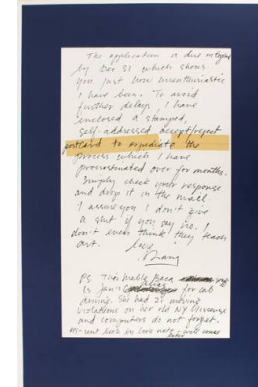 The application is due in
by Dec 31 which shows
you just how unenthusiastic
I have been. To avoid
further delays, I have
enclosed a stamped,
self-addressed accept/reject
postcard to expediate the
process which I have
procrastinated over for months.
Simply check your response
and drop it in the mail.
I assure you I don't give
a shit if you say no. I
don't even think they teach
art.
love,
PS.
is Jan's for cab
driving. She had 21 moving
violations on her old NY license
and computers do not forget.